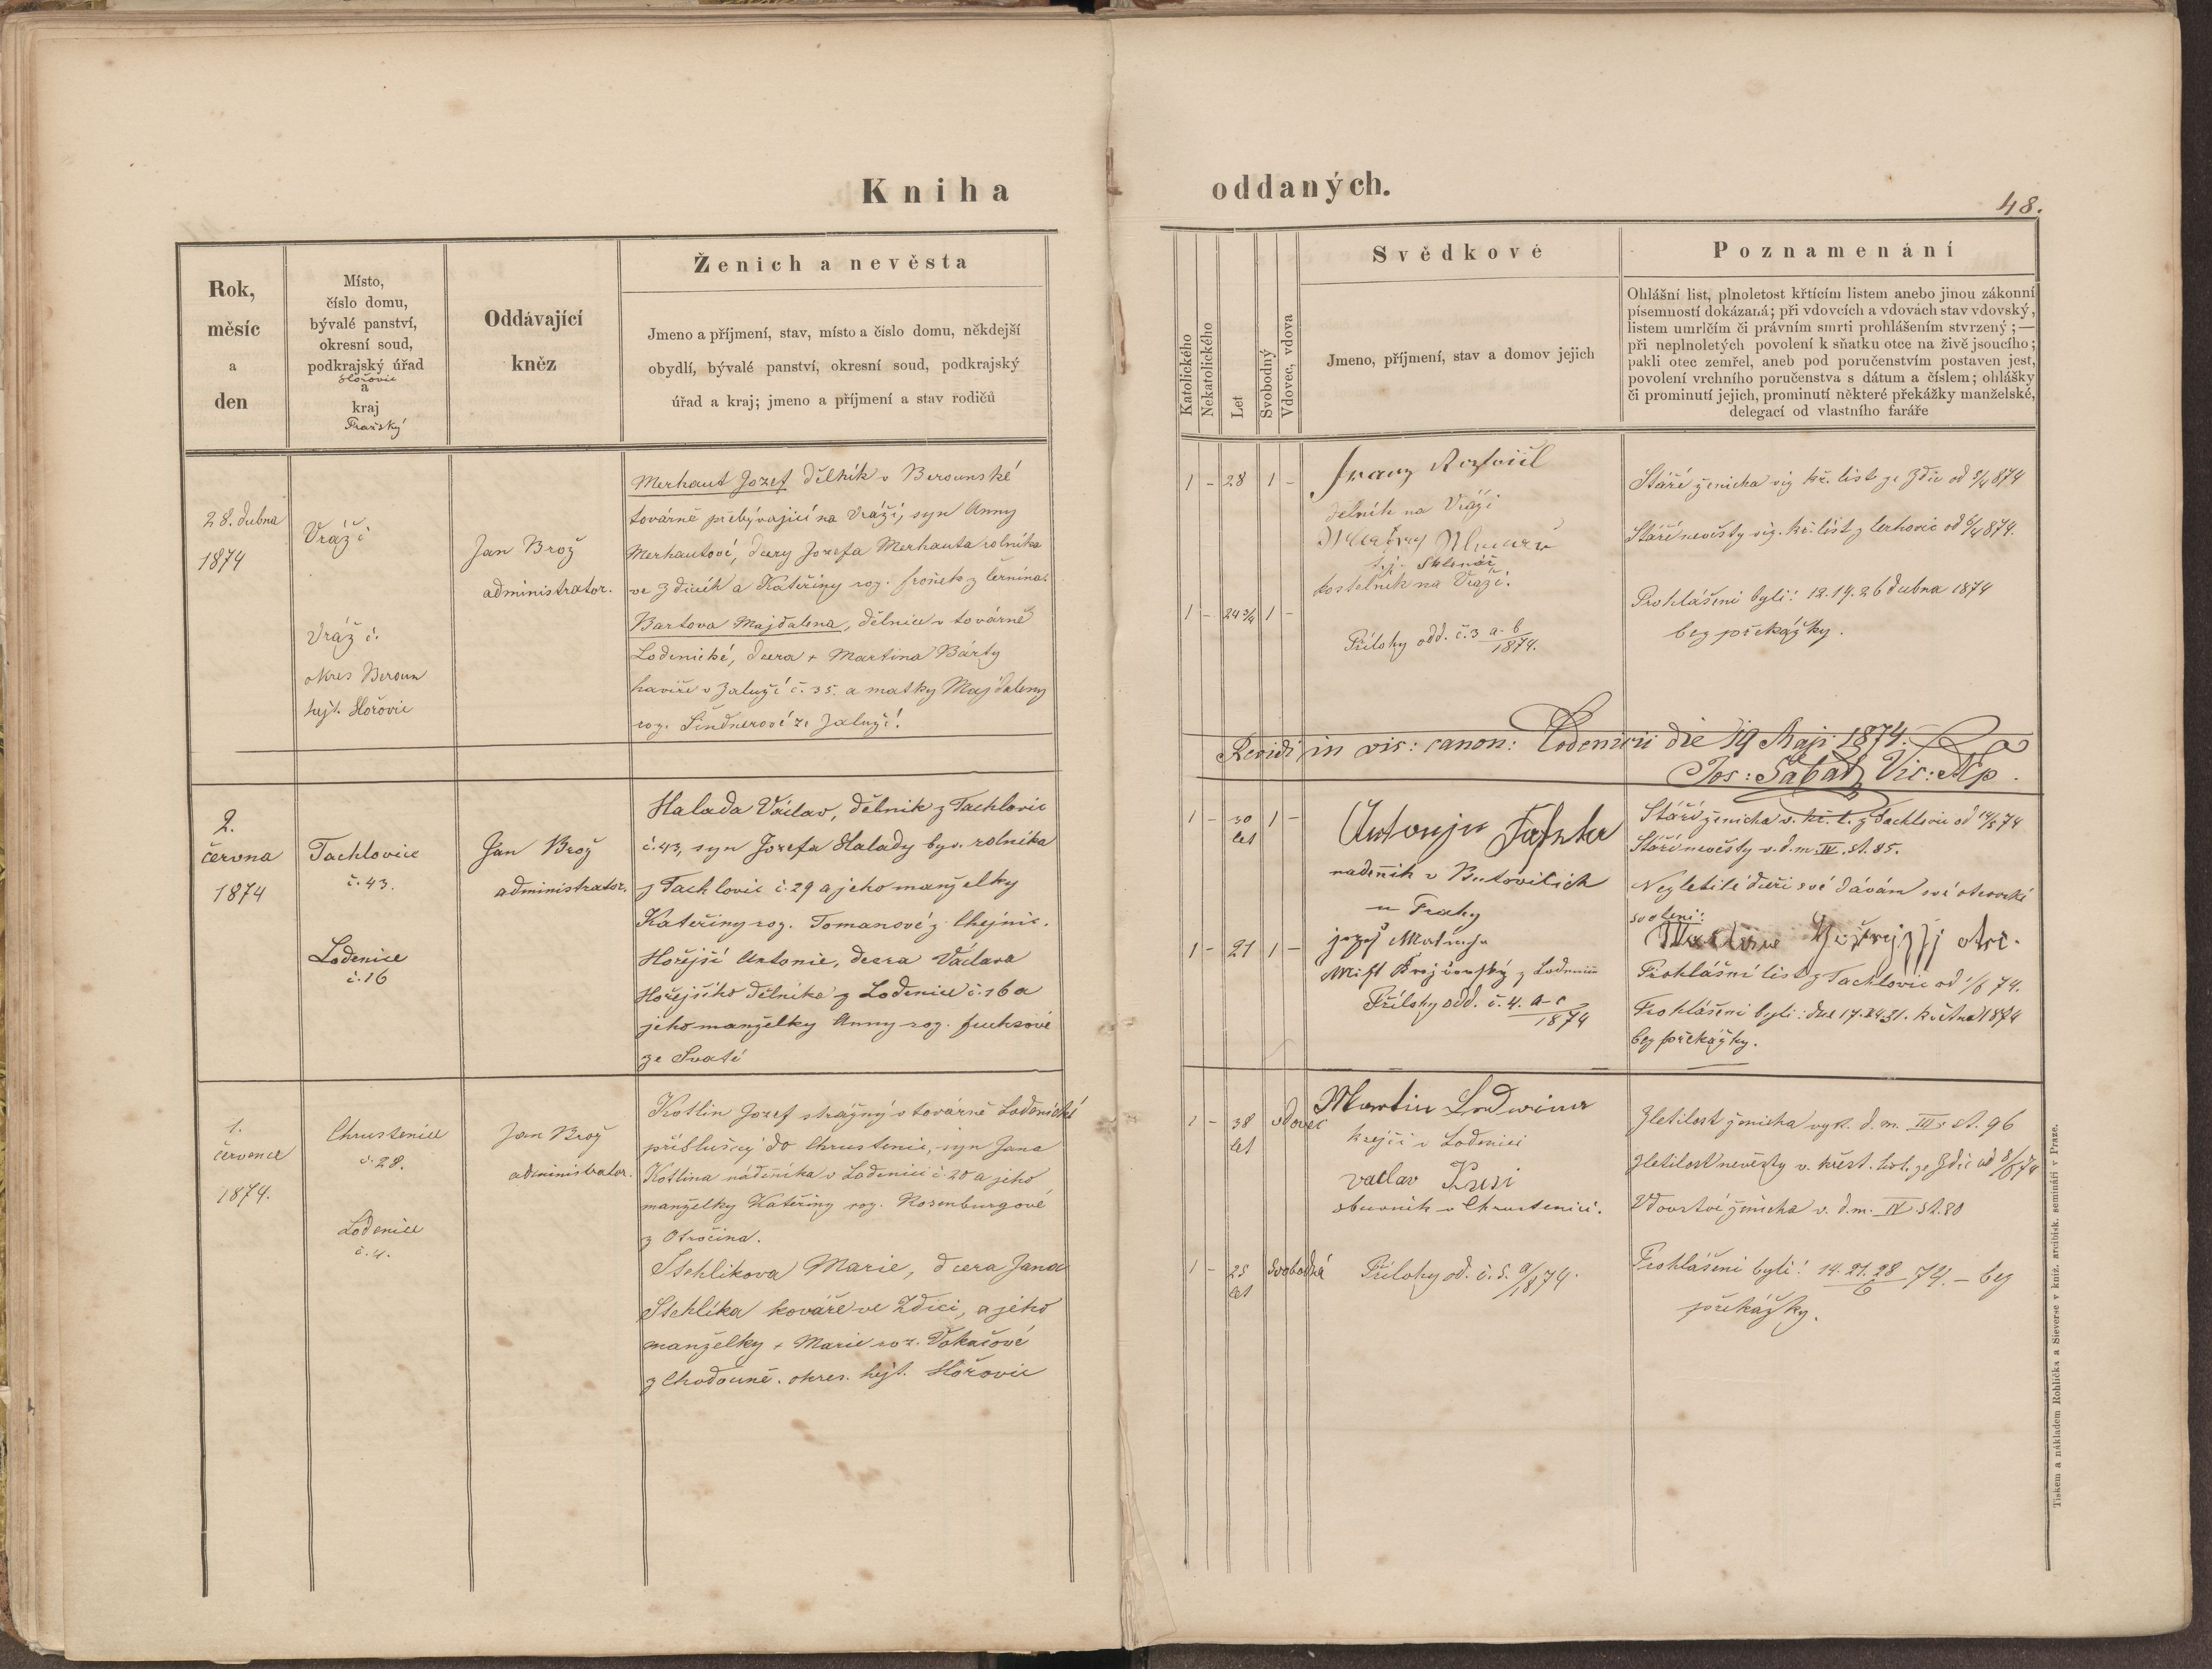 Kniha
oddaných.
48.
Rok,
měsíc
a
den
Místo,
číslo domu,
bývalé panství,
okresní soud,
podkrajský úřad
Hořovic
a
kraj
Pražský
Oddávající
kněz
Ženich a nevěsta
Jmeno a příjmení, stav, místo a číslo domu, někdejší
obydlí, bývalé panství, okresní soud, podkrajský
úřad a kraj; jmeno a příjmení a stav rodičů
Katolického
Nekatolického
Let
Svobodný
Vdovec, vdova
Svědkové
Jmeno, příjmení, stav a domov jejich
Poznamenání
Ohlášní list, plnoletost křtícím listem anebo jinou zákonní
písemností dokázaná; při vdovcích a vdovách stav vdovský,
listem umrlčím či právním smrti prohlášením stvrzený; —
při neplnoletých povolení k sňatku otce na živě jsoucího;
pakli otec zemřel, aneb pod poručenstvím postaven jest,
povolení vrchního poručenstva s dátum a číslem; ohlášky
či prominutí jejich, prominutí některé překážky manželské,
delegací od vlastního faráře
28. dubna
1874
Vráž č
Vráž č.
okres Beroun
hejt. Hořovic
Jan Brož
administrator.
Merhaut Jozef dělník v Berounské
továrně přebývající na Vráži, syn Anny
Merhautové, dcery Jozefa Merhauta rolníka
ve Zdicích a Kateřiny roz. z Černína.
Bartova Majdalena, dělnice v továrně
Loděnické, dcera + Martina Bárty
havíře v Zaluží č. 35. a matky Majdaleny
roz. Šindnerové ze Zaluží.
1 - 28 1 -
1 - 24 3/4 1 -
Franz
dělník na Vráži
t.j. Sklenář
kostelník na Vráži.
Přílohy odd. č. 3 a-b
1874.
Stáří ženicha viz kř. list ze Zdic od 5/4 874
Stáří nevěsty viz. kř. list z Cerhovic od 6/4 874.
Prohlášeni byli: 12. 19. 26 dubna 1874
bez překážky.
Revidi in vis: canon: Lodenicii die 19 Maji 1874.
Jos: Sabath Vic:
2.
června
1874
Tachlovice
č. 43.
Loděnice
č. 16
Jan Brož
administrator.
Halada Václav, dělník z Tachlovic
č. 43, syn Jozefa Halady byv. rolníka
z Tachlovic č. 29 a jeho manželky
Kateřiny roz. Tomanové z Chejnic.
Hořejší Antonie, dcera Václava
Hořejšího dělníka z Loděnice č. 16 a
jeho manželky Anny roz. Fuchsové
ze Svaté
1 - 30 1 -
let
1 - 21 1 -
Antonjn
nadeník v Butovicích
u Prahy
jozef
z Loděnice
Přílohy odd. č. 4. a-c
1874
Stáří ženicha v. kř. l. z Tachlovic od 14/5 74
Stáří nevěsty v. d. m. IV. st. 85.
Nezletilé dceři své dávám své otcovské
svolení:
otec.
Prohlášní list z Tachlovic od 1/6 74.
Prohlášeni byli: dne 17. 24. 31. května 1874
bez překážky.
1.
července
1874.
Chrustenice
č. 28.
Loděnice
č. 4.
Jan Brož
administrator.
Kotlin Jozef strážný v továrně Loděnické
příslušcý do Chrustenic, syn Jana
Kotlina nádeníka v Loděnici č. 20 a jeho
manželky Kateřiny roz. Rosenburgové
z Otročina.
Stehlikova Marie, dcera Jana
Stehlíka kováře ve Zdici, a jeho
manželky + Marie roz. Vokačové
z Chodouně. okres. hejt. Hořovic
1 - 38 vdovec
let
1 - 25 svobodná
let
Martin Ledwina
krejčí v Loděnici
vaclav Krisi
obuvník v Chrustenici.
Přílohy od. č. 5. a/1874.
Zletilost ženicha vyk. d. m. III st. 96
Zletilost nevěsty v. křest. list. ze Zdic od 8/6 74
Vdovství ženicha v. d. m. IV. st. 80
Prohlášeni byli: 14. 21. 28 74. - bez
6
překážky.
Tiskem a nákladem Rohlíčka a Sieverse v kníž. arcibisk. semináři v Praze.